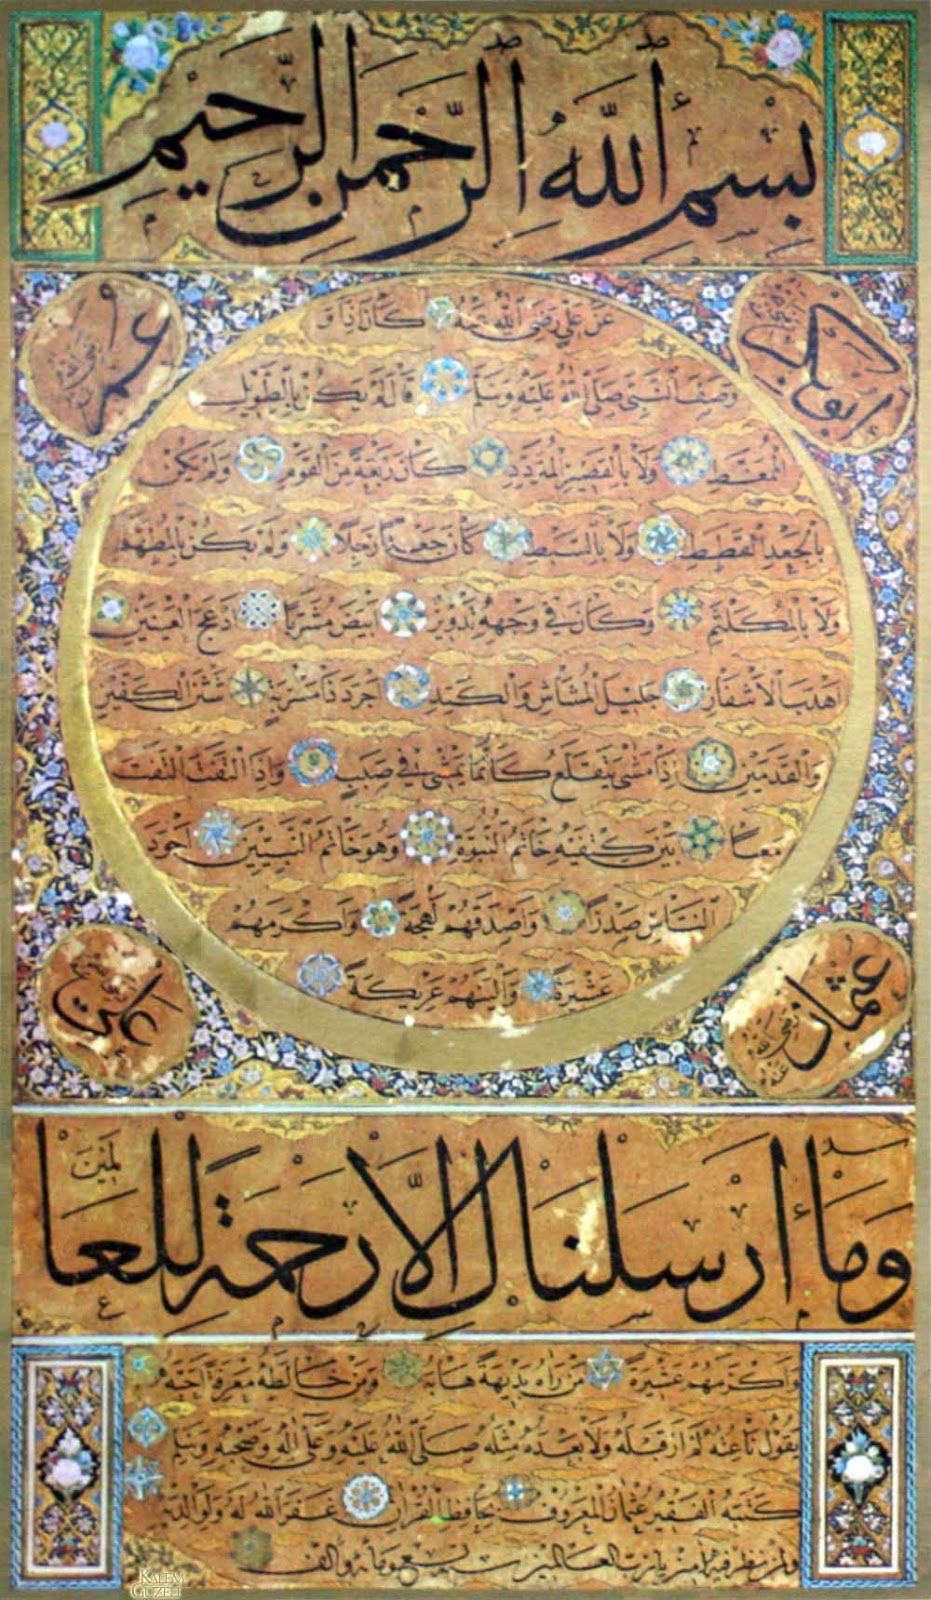 بسم الله الرحمن الرحيم
ابو بكر رضي الله عنه
عمر رضي الله عنه
عن علي رضي الله عنه كان اذا
وصف النبي صلى الله عليه وسلم قال لم يكن بالطويل
الممغط ولا بالقصير المتردد كان ربعة من القوم ولم يكن
بالجعد القطط ولا بالسبط كان جعدا رجلا ولم يكن بالمطهم
ولا بالمكلثم وكان في وجهه تدوير ابيض مشربا ادعج العينين
اهدب الاشفار جليل المشاش والكتد اجرد ذا مسربة شثن الكفين
والقدمين اذا مشى يتقلع كانما يمشي في صبب واذا التفت التفت
معا بين كتفيه خاتم النبوة وهو خاتم النبيين اجود
الناس صدرا واصدقهم لهجة واكرمهم
عشيرة والينهم عريكة
عثمان رضي الله عنه
علي
وما ارسلناك الا رحمة للعالمين
واكرمهم عشيرة من راه بديهة هابه ومن خالطه معرفة احبه
يقول ناعته لم ار قبله ولا بعده مثله صلى الله عليه وعلى اله وصحبه وسلم
كتبه الفقير عثمان المعروف بحافظ القران غفر الله له ولوالديه
ولمن نظر فيه امين يا رب العالمين سنة تسع ومائة والف
KALEM
GÜZELİ